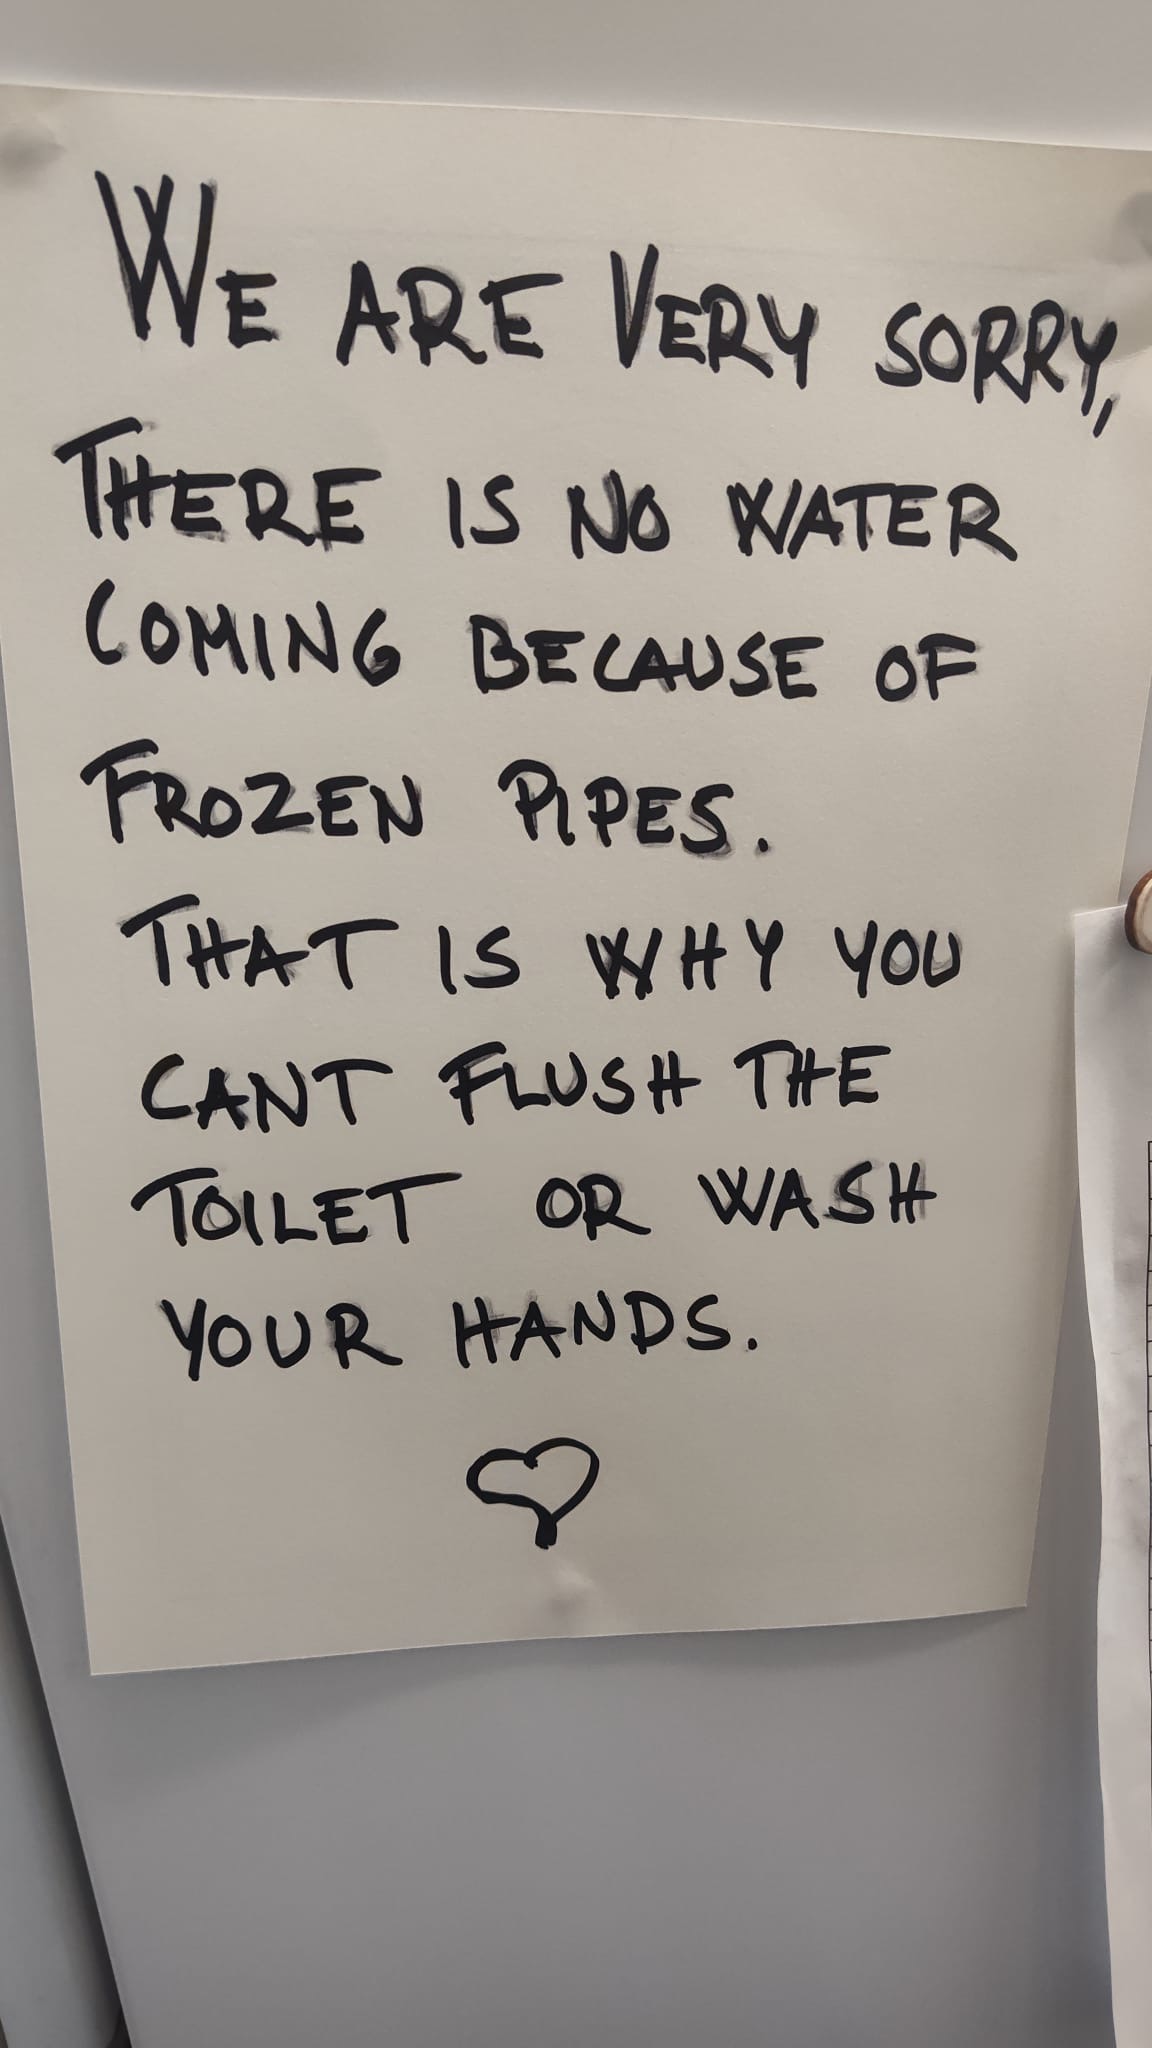 WE ARE VERY SORRY,
THERE IS NO WATER
COMING BECAUSE OF
FROZEN PIPES.
THAT IS WHY YOU
CANT FLUSH THE
TOILET OR WASH
YOUR HANDS.